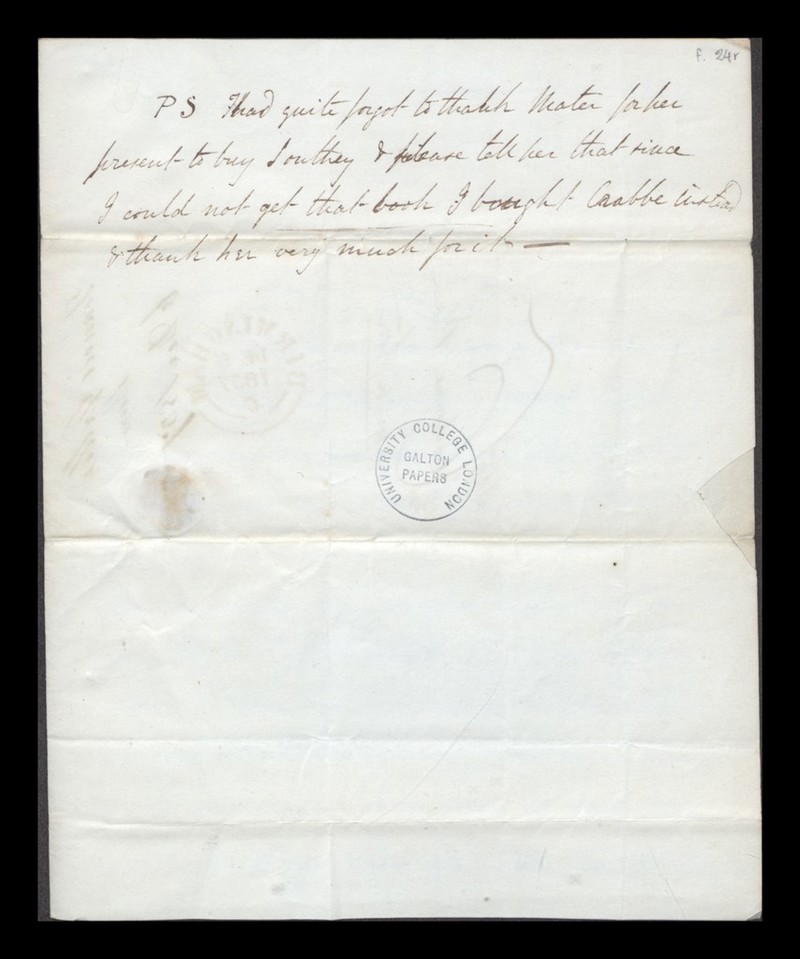 f. 24r
PS I had quite forgot to thank Mater for her
present to buy Southey & please tell her that since
I could not get that book I bought Crabbe instead
& thank her very much for it —
UNIVERSITY COLLEGE LONDON
GALTON
PAPERS